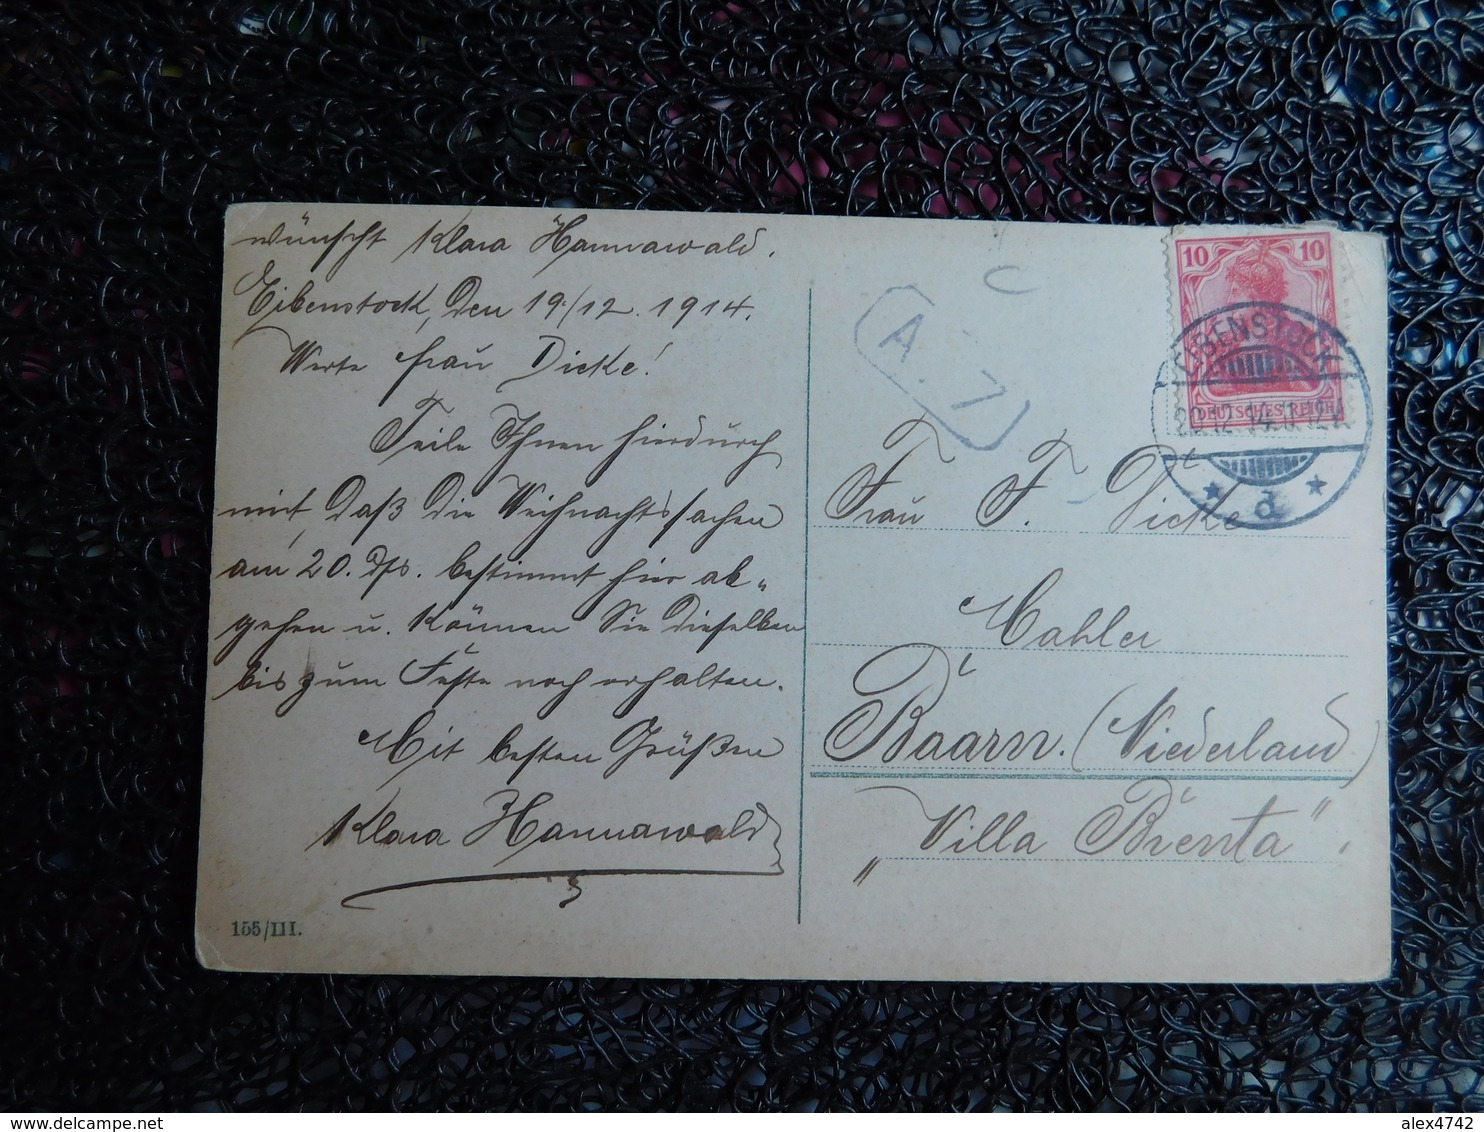 wünscht Klara Hannawald.
Eibenstock, den 19./12. 1914.
Werte Frau Dicke!
Teile Ihnen hierdurch
mit, daß die Weihnachtssachen
am 20. ds. bestimmt hier ab„
gehen u. können Sie dieselben
bis zum Feste noch erhalten.
Mit besten Grüßen
Klara Hannawald
155/III.
C
A. 7
10 10
DEUTSCHES REICH
EIBENSTOCK
* d *
Frau F. Dicke
Mahler
Baarn. (Niederland)
„Villa Brenta".
alex4742